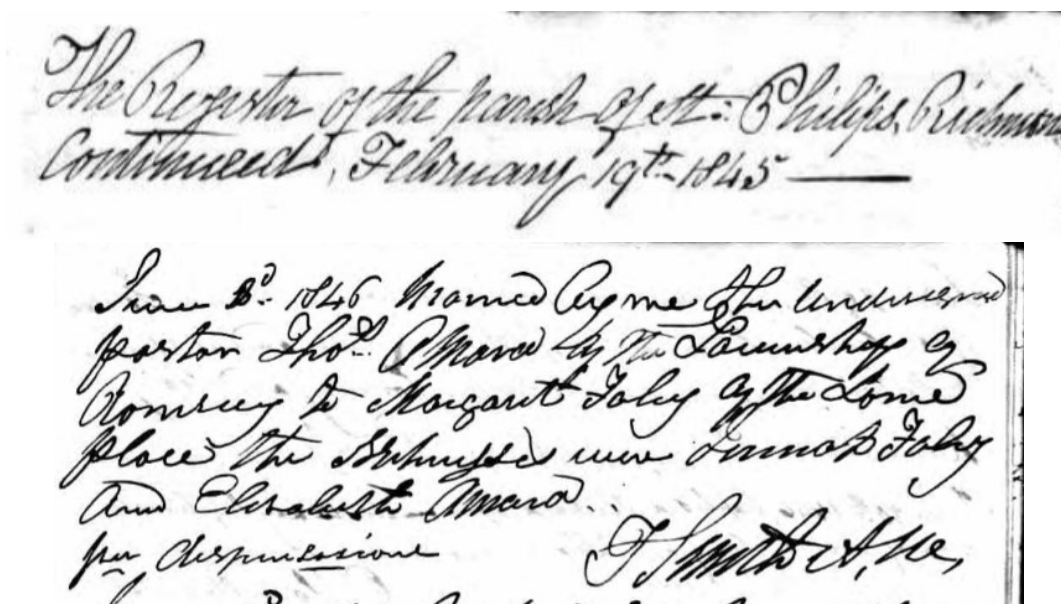 The Register of the parish of St: Philips, Richmon
Continued, February 19th 1845 —
June 1846 Married by me the undersigned
pastor Thos. OMara of the Township of
Romsey to Margaret Foley of the Same
place the Witnesses were Foley
and Elisabeth Omara
per dispensatione
Smith